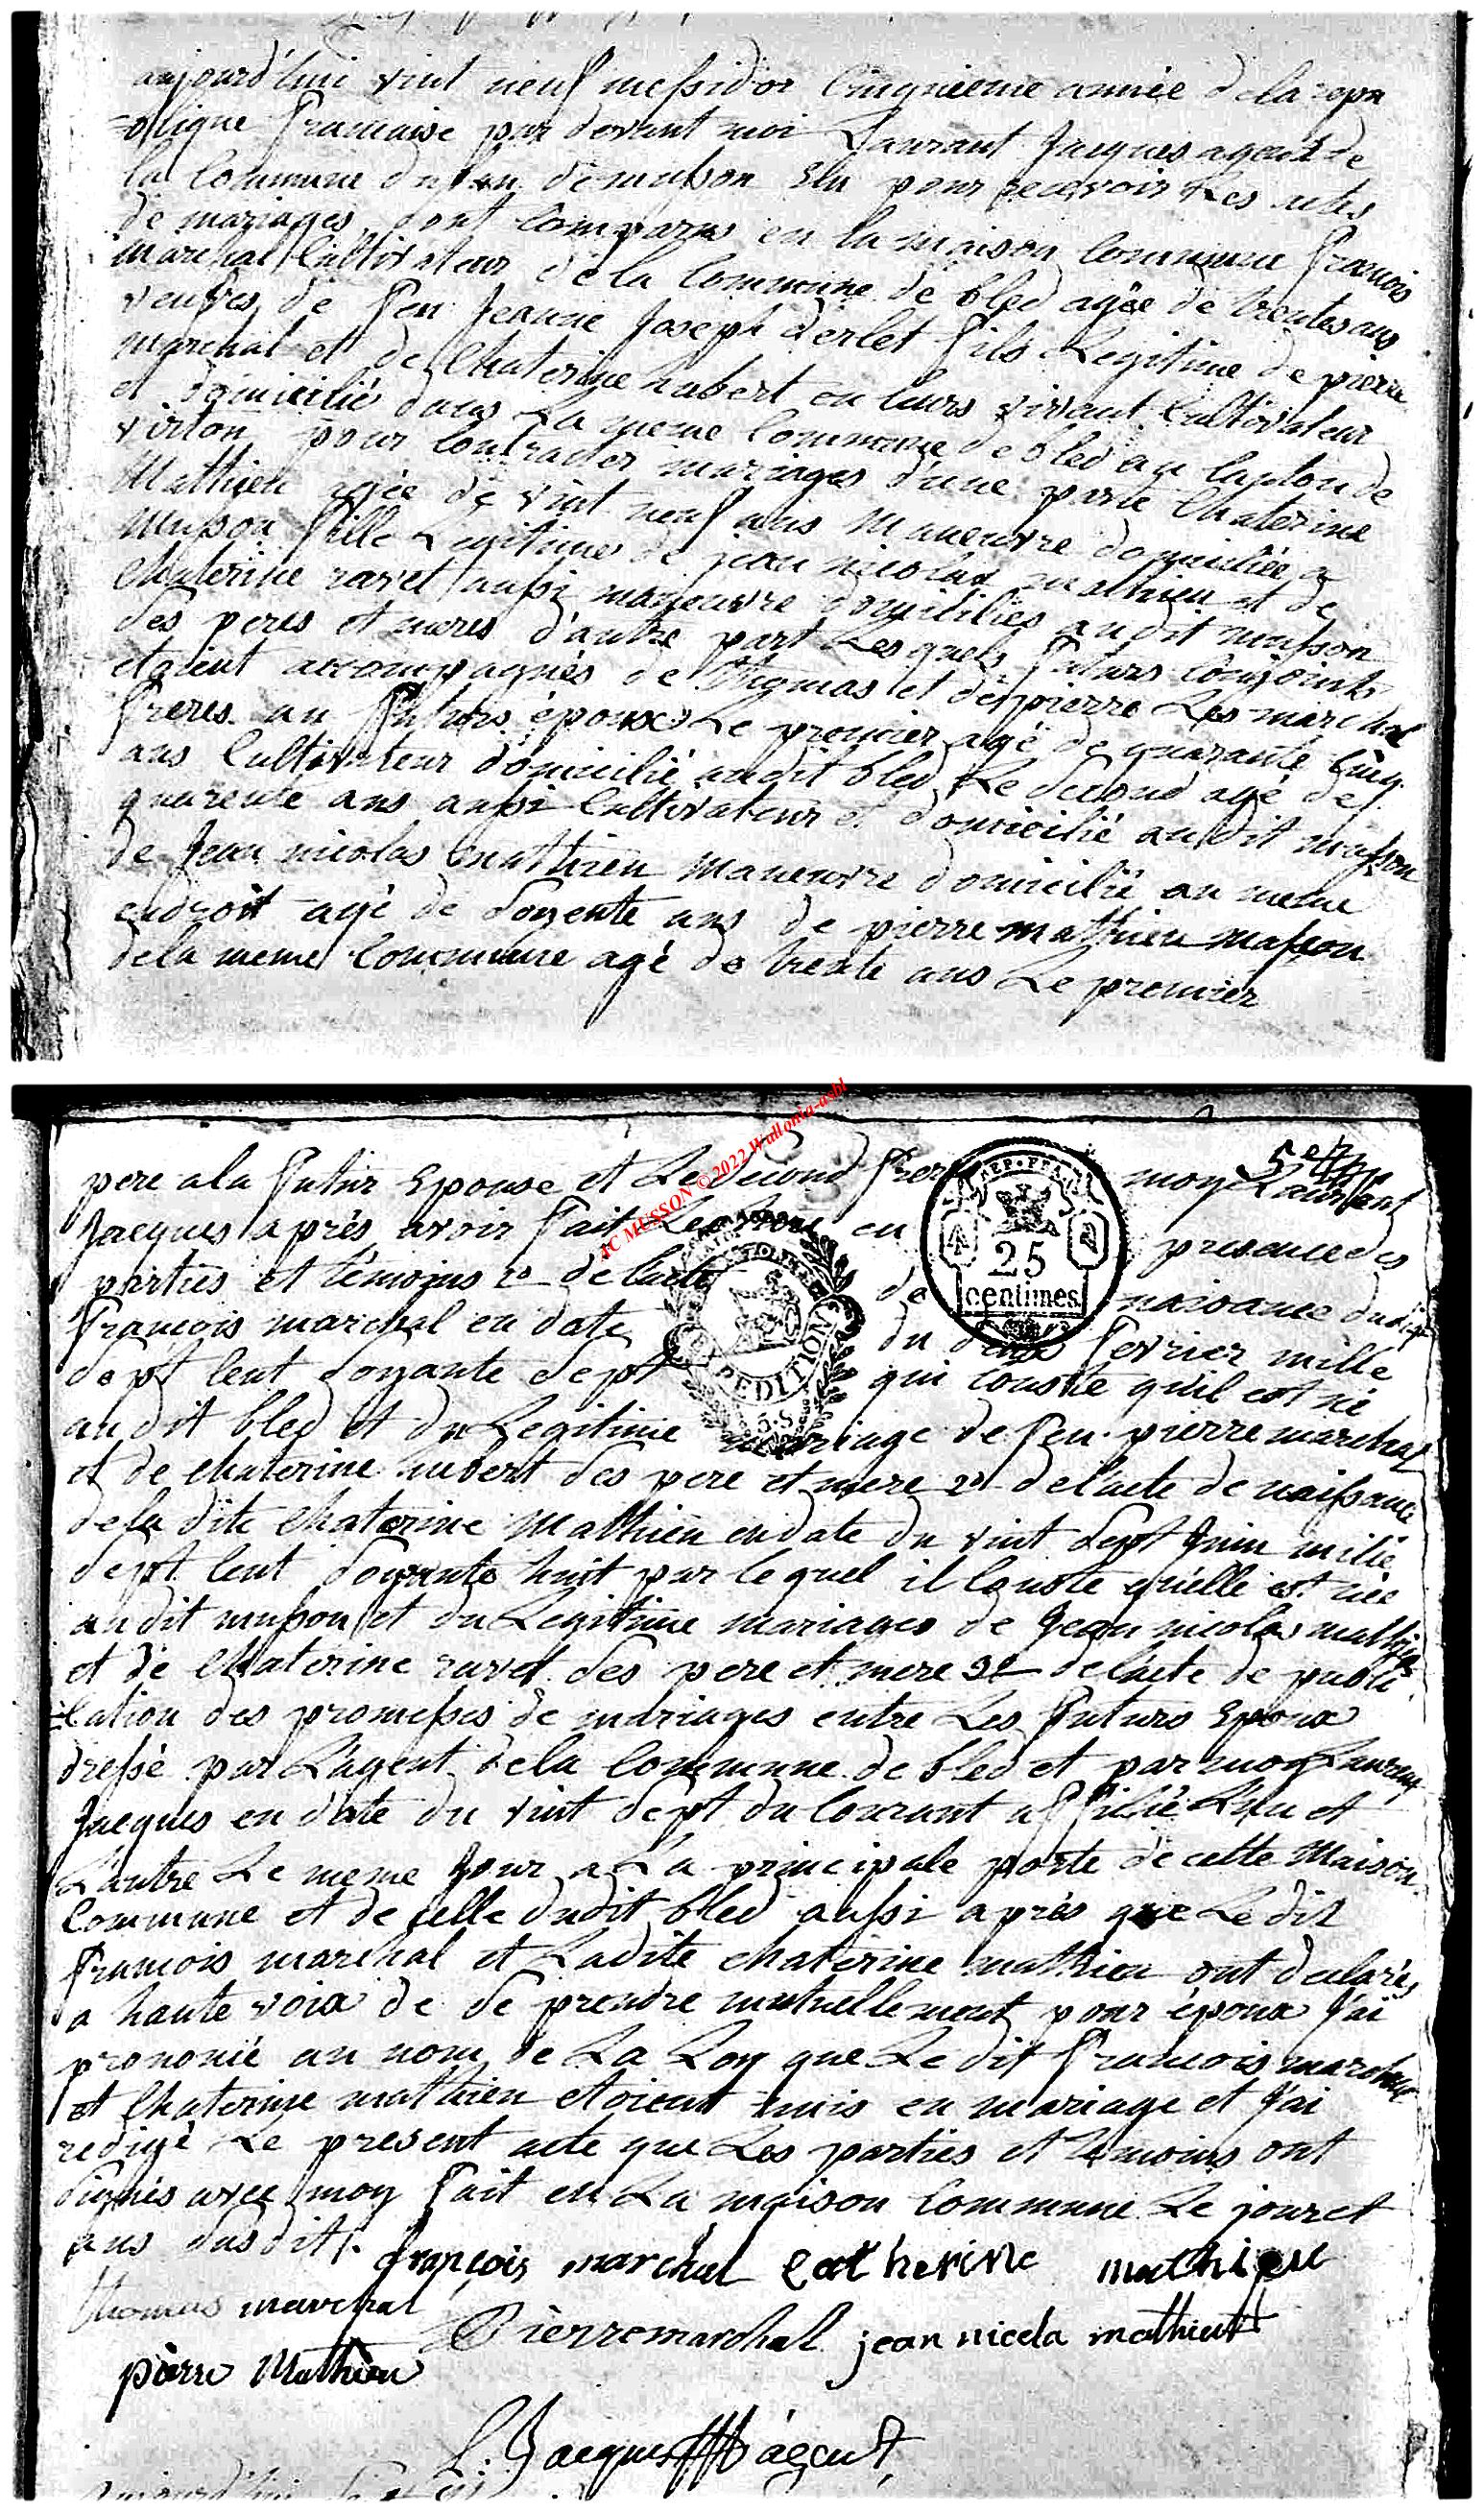 aujourd'hui vint neuf messidor Cinquieme année de la repu
=blique francaise par devant moi Laurant Jacques agent de
la Commune du de musson Elu pour recevoir Les actes
de mariages, sont Comparus en la maison Commune francois
marchal Cultivateur de la Commune de bled agée de trentes ans
veufves de feu Jeanne Joseph derlet fils Legitime de pierre
marchal et de Chaterine hubert en leurs vivant Cultivateur
et domicilié dans La meme Commune de bled au Canton de
virton pour Contracter mariages d'une part Chaterine
Mathieu agée de vint neuf ans Maneuvre domiciliée a
musson fille Legitimes de jean nicolas mathieu et de
Chaterine ravet aussi maneuvre domicilies audit musson
ses peres et meres d'autre part Lesquels futurs conjoints
etoient accompagnés de thomas et de pierre Les marchal
freres au futurs époux Le premier agé de quarante Cinq
ans Cultivateur domicilié audit bled Le Second agé de
quarente ans aussi Cultivateur et domicilié audit musson
de Jean nicolas mathieu Maneuvre domicilié au meme
endroit agé de Soixente ans de pierre mathieu masson
dela meme Commune agé de trente ans Le premier
JC MUSSON © 2022 Wallonia-asbl
pere a la futur Epouse et Le Second frere moy Laurant
Jacques aprés avoir fait Lecture en presence des
parties et témoins 1º de Lacte de naisance dudit
REP. FRA
25
centimes
François marchal en date du deux fevrier mille
EXPEDITION
sept Cent Soixante Sept qui conste qu'il est né
au dit bled et du Legitime mariage de feu pierre marchal
et de Chaterine hubert Ses pere et mere 2º de l'acte de naissance
dela dite Chaterine Mathieu en date du vint Sept Juin mille
Sept Cent Soixante huit par le quel il Conste qu'elle est née
au dit musson et du Legitime mariages de Jean nicolas mathieu
et de Chaterine ravet Ses pere et mere 3º de l'acte de publi
=cation des promesses de mariages entre Les futurs Epoux
dressé par L'agent dela Commune de bled et par moy Laurant
Jacques en date du vint Sept du Courant affiché L'un et
L'autre Le meme Jour a La principale porte de cette Maison
Commune et de Celle dudit bled aussi aprés que Le dit
francois marchal et Ladite Chaterine mathieu ont declarés
a haute voix de Se prendre mutuellement pour époux J'ai
prononcé au nom de La Loy que Le dit francois marchal
et Chaterine mathieu etoient unis en mariage et J'ai
redigé Le present acte que Les parties et temoins ont
Signés avec moy fait en La maison Commune Le jour et
ans Susdit.
françois marchal Catherine mathieu
thomas marchal
Pierre marchal jean nicola mathieu
pierre Mathieu
L. Jacques agent
aujourd'hui